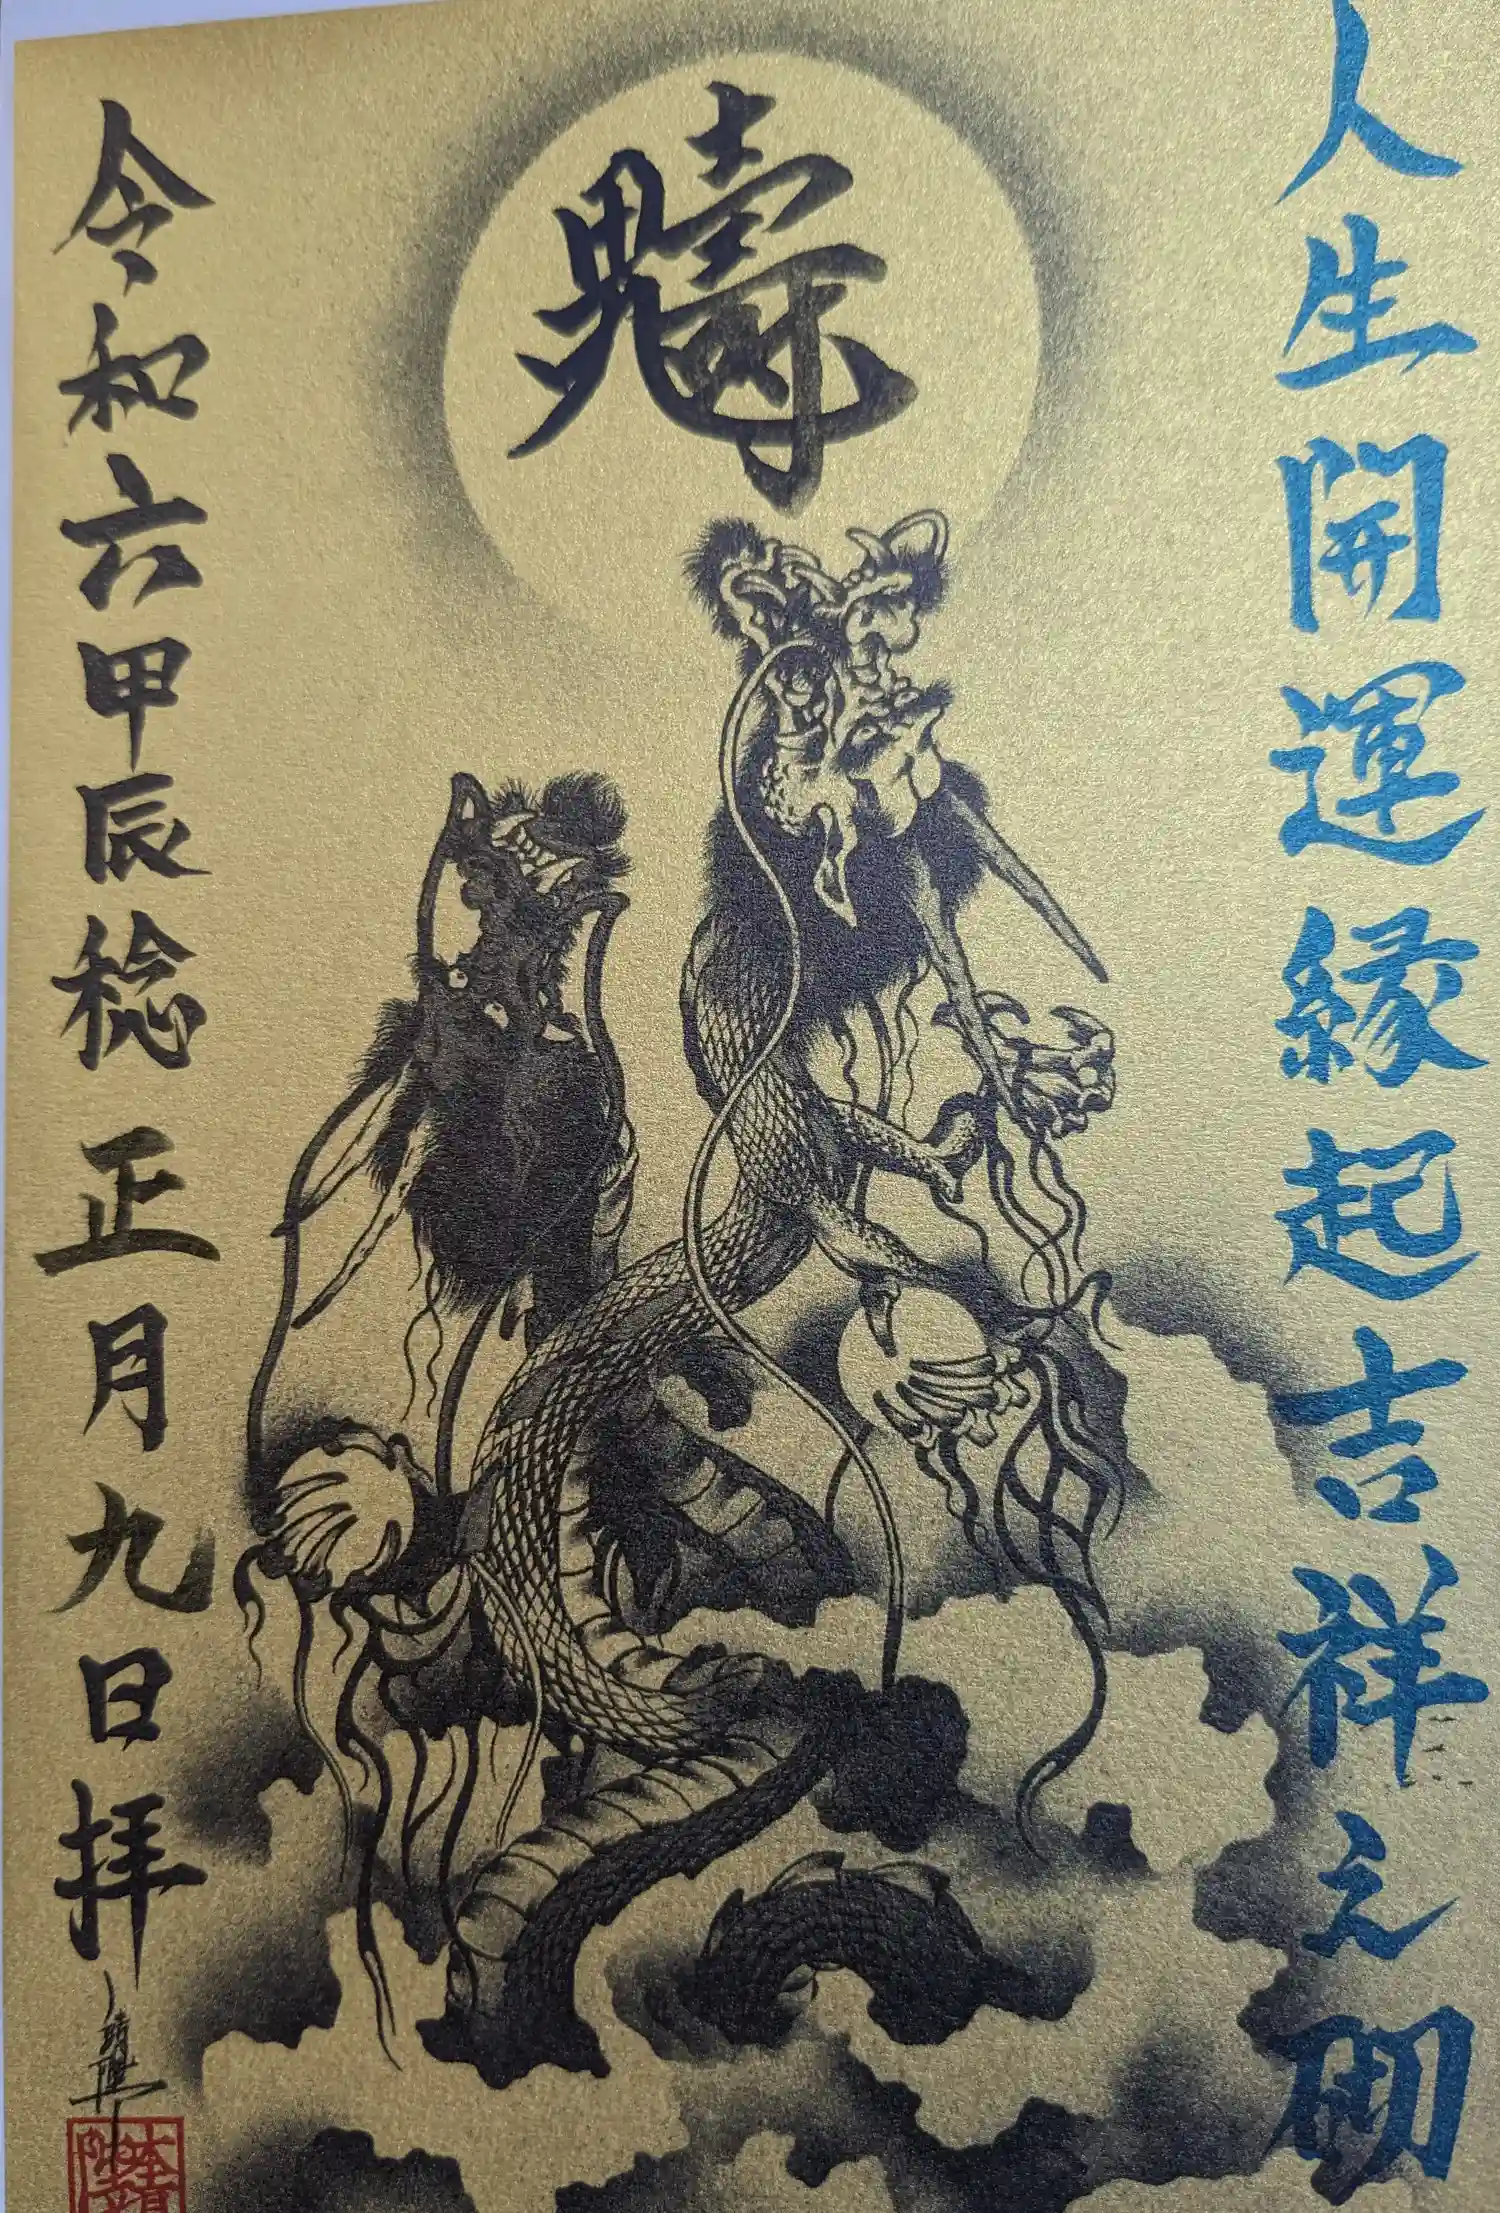 人生開運縁起吉祥之砌
令和六甲辰稔正月九日拝